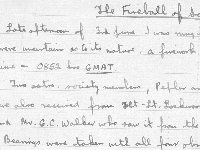 The Fireball of
Late afternoon of 3rd June I was
mountain & its nature, a firework
- 0852 hrs GMAT.
Two astro. society members, Peplow and
also received from Flt-Lt.
Mr. G.C. Walker who saw it from the
Bearings were taken with all four obs